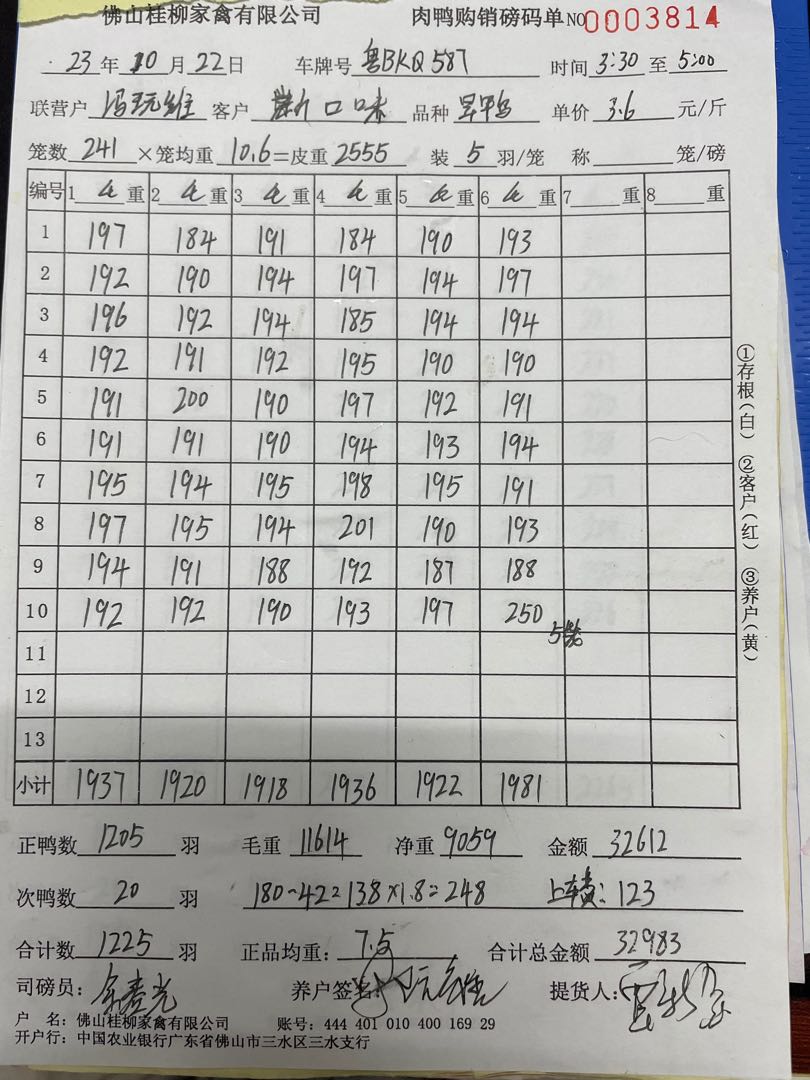 佛山桂柳家禽有限公司 肉鸭购销磅码单 NO 0003814
23年10月22日 车牌号 粤BKQ587 时间 3:30 至 5:00
联营户 冯玩维 客户 新口味 品种 旱鸭 单价 3.6 元/斤
笼数 241 ×笼均重 10.6 =皮重 2555 装 5 羽/笼 称 笼/磅
编号 1 4 重 2 4 重 3 4 重 4 4 重 5 4 重 6 4 重 7 重 8 重
1 197 184 191 184 190 193
2 192 190 194 197 194 197
3 196 192 194 185 194 194
4 192 191 192 195 190 190
5 191 200 190 197 192 191
6 191 191 190 194 193 194
7 195 194 195 198 195 191
8 197 195 194 201 190 193
9 194 191 188 192 187 188
10 192 192 190 193 197 250
5笼
11
12
13
小计 1937 1920 1918 1936 1922 1981
正鸭数 1205 羽 毛重 11614 净重 9059 金额 32612
次鸭数 20 羽 180-42=138×1.8=248 上车费:123
合计数 1225 羽 正品均重: 7.5 合计总金额 32983
司磅员: 养户签名: 提货人:
户 名: 佛山桂柳家禽有限公司 账号: 444 401 010 400 169 29
开户行: 中国农业银行广东省佛山市三水区三水支行
①存根(白) ②客户(红) ③养户(黄)